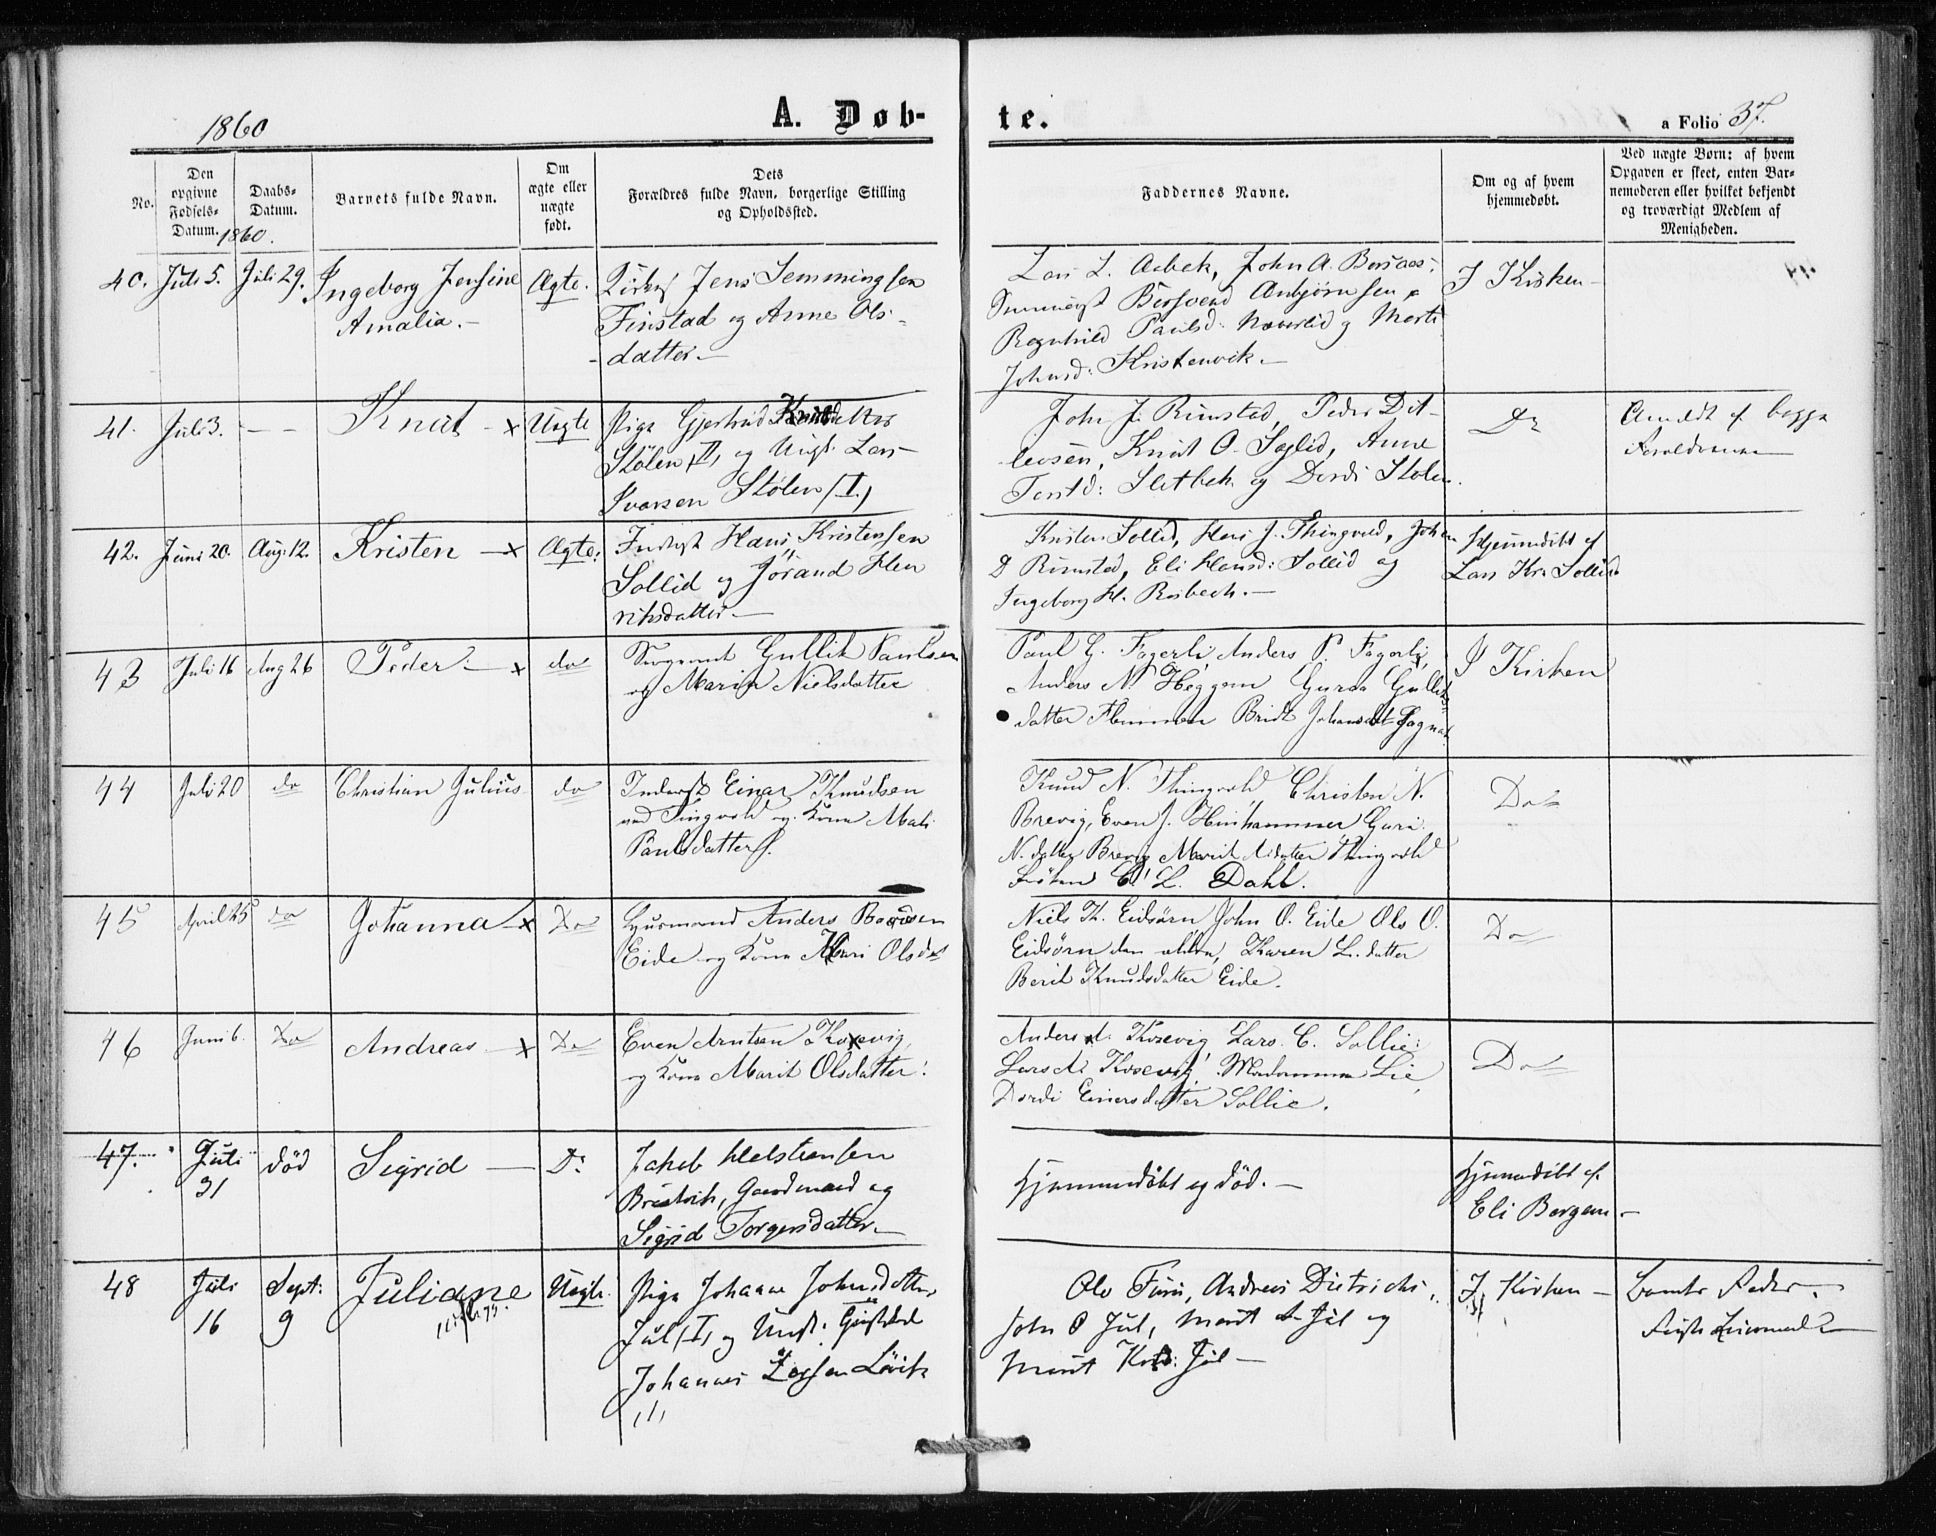 1860
A. Døb-
te.
a Folio 37.
No.
Den
opgivne
Fødsels-
Datum.
Daabs-
Datum.
1860.
Barnets fulde Navn.
Om
ægte eller
uægte
født.
Dets
Forældres fulde Navn, borgerlige Stilling
og Opholdssted.
Faddernes Navne.
Om og af hvem
hjemmedøbt.
Ved uægte Børn: af hvem
Opgaven er skeet, enten Bar-
nemoderen eller hvilket bekjendt
og troværdigt Medlem af
Menigheden.
40. Juli 5. Juli 29. Ingeborg Jensine
Amalia. -
Ægte.
Jens Semmingsen
Finstad og Anne Ols-
datter -
Lars L. Aabek, John A.
Anbjørnsen,
Regnhild Paulsd: og Marti
Johnsd: Kristenvik -
I Kirken -
41. Juli 3. - - Knut - x Uægte
Pige Gjertrud Knutsdatter
Stølen (II) og Ungk. Lars
Ivarsen Stølen (I.)
John J. Rimstad, Peder Dit-
levsen, Knut O. Søglid, Anne
Sletbek og Dordi Stølen.
Do
Anmeldt af begge
Forældrene
42. Juni 20. Aug: 12. Kristen - x Ægte:
Inderst Hans Kristensen
Sollid og Jørand Hen
riksdatter -
Kristen Sollid, Hans J. Thingvold, Johan
D Rimstad, Eli Hansd: Sollid og
Ingeborg H. Rosbech. -
Hjemmedøbt af
Lars Kr. Sollid
43 Juli 16 Aug 26 Peder - x do
Sergeant Gullik Paulsen
og Marit Nielsdatter
Paul G. Fagerli Anders P. Fagerli,
Anders N. Heggem Guroa Gulliks
datter Flemmen Bridt Johansdt
I Kirken
44 Juli 20 do Christian Julius do
Inderst Einar Knudsen
ved Tingvold og Kone Mali
Paulsdatter.
Knud N. Thingvold Christen N.
Brevig, Even J. Henhammer Guri
N. datter Brevig Marit datter Thingvold
Frøken E. L. Dahl.
Do
45 April 25 do Johanna - x Do
Huusmand Anders Baardsen
Eide og Kone Mari Olsdt
Niels K. Eidsørn John O. Eide Ols O.
Eidsørn den eldre, Karen L. datter
Berit Knudsdatter Eide.
Do
46 Juni 6. Do Andreas - x Do
Even Arntsen Korsvig,
og Kone Marit Olsdatter.
Anders A. Korsvig Lars C. Sollie
Korsvig, Madamme Lie,
Dordi Einersdatter Sollie.
Do
47. Juli
31
død
Sigrid - Do
Jakob Helstensen
Gaardmand og
Sigrid Torgersdatter -
Hjemmedøbt og død. -
Hjemmedøbt af
Eli Bergem -
48 Juli
16
Sept:
9
Juliane
Uægte
Pige Johanne Johnsdatter
Jul (I) og
Johannes Larsen
Ole Furu, Andreas Dietrichs.,
John O Jul, Marit Jul og
Marit Jul -
I Kirken -
Barnets Fader -